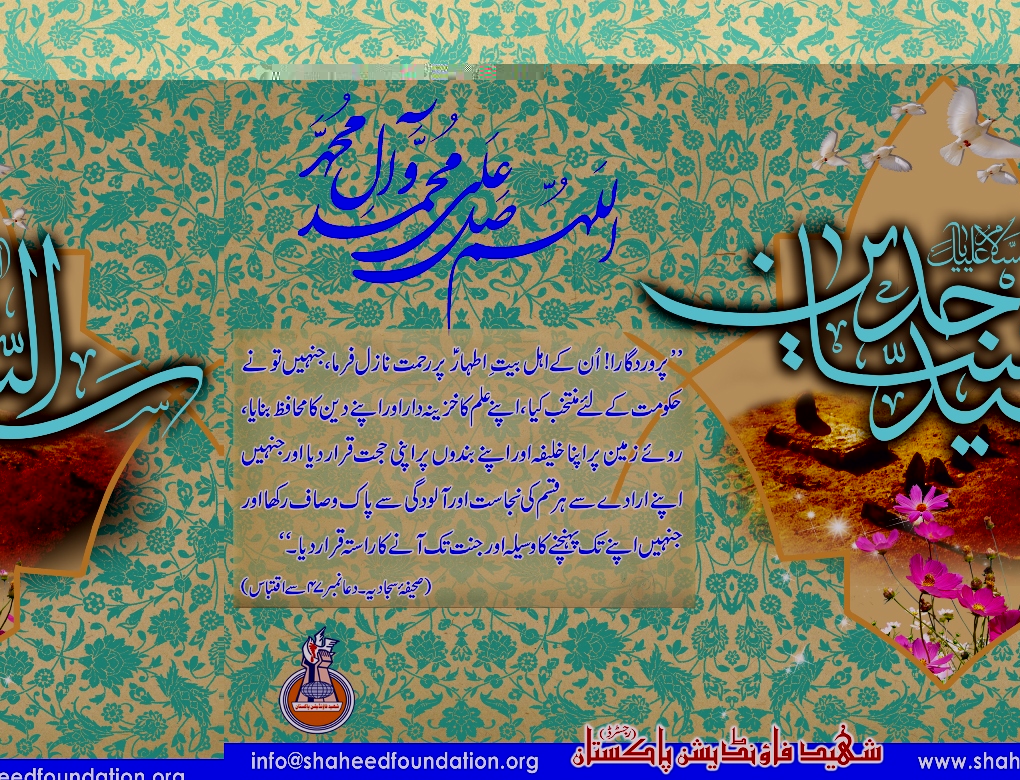 اللهم صل علی محمد و آل محمد
السلام علیک
سید الساجدین
”پروردگارا! اُن کے اہل بیتِ اطہارؑ پر رحمت نازل فرما، جنہیں تو نے
حکومت کے لئے منتخب کیا، اپنے علم کا خزینہ دار اور اپنے دین کا محافظ بنایا،
روئے زمین پر اپنا خلیفہ اور اپنے بندوں پر اپنی حجت قرار دیا اور جنہیں
اپنے ارادے سے ہر قسم کی نجاست اور آلودگی سے پاک و صاف رکھا اور
جنہیں اپنے تک پہنچنے کا وسیلہ اور جنت تک آنے کا راستہ قرار دیا۔“
(صحیفۂ سجادیہ۔ دعا نمبر ۴۷ سے اقتباس)
شھید فاؤنڈیشن پاکستان
شھید فاؤنڈیشن پاکستان (رجسٹرڈ)
info@shaheedfoundation.org
www.shah
eedfoundation.org